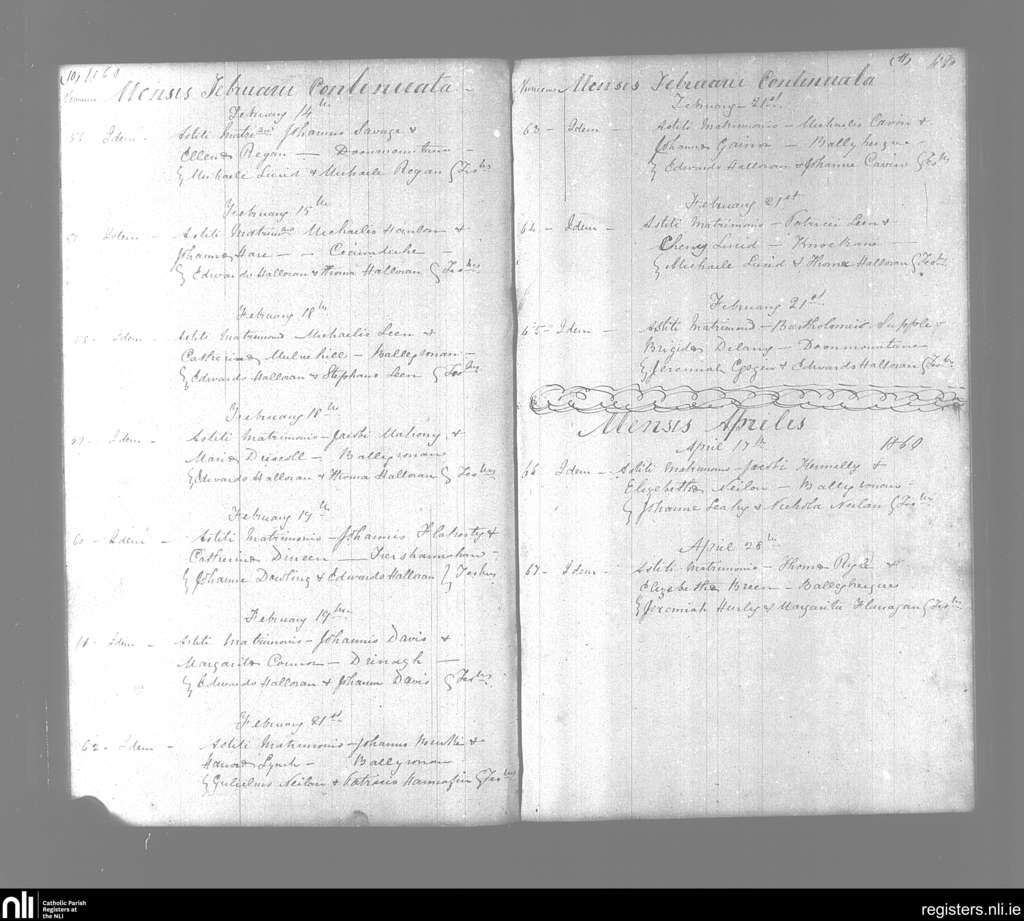 (10) 1860
Mensis Februarii Continuata
February 14th
56 Idem - Astiti Matrimo Johannis Savage &
Ellena Regan - Doonmountain -
& Michaele Lucid & Michaele Regan } Testes
February 15th
57 Idem - Astiti Matrimo Michaelis Hanlon &
Johanna Hare -
& Edwardo Halloran & Thoma Halloran } Testes
February 18th
58 Idem - Astiti Matrimo Michaelis Leen &
Catherina Mulvehill - Ballyronan -
& Edwardo Halloran & Stephano Leen } Testes
February 18th
59 - Idem - Astiti Matrimonio - Jacobi Mahony &
Maria Driscoll - Ballyronan
& Edwardo Halloran & Thoma Halloran } Testes
February 19th
60 - Idem - Astiti Matrimonio - Johannis Flaherty &
Catherina Dineen -
& Johanne Dowling & Edwardo Halloran } Testes
February 19th
61 - Idem - Astiti Matrimonio - Johannis Davis &
Margarita Connor - Drinagh -
& Edwardo Halloran & Johanna Davis } Testes
February 21st
62 - Idem - Astiti Matrimonio - Johannis &
Hanora Lynch - Ballyronan
& Gulielmo Neilan & Patricio Hannafin } Testes
(11)
Mensis Februarii Continuata
February - 21st
63 - Idem - Astiti Matrimonio - Michaelis Cavin &
Johanna Gainor - Ballyheigue -
& Edwardo Halloran & Johanne Cavin } Testes
February 21st
64 - Idem - Astiti Matrimonio - Patricii Leen &
Lucid -
& Michaele Lucid & Thoma Halloran } Testes
February 21st
65 - Idem - Astiti Matrimonio - Bartholomeo Supple &
Brigida Delany - Doonmountain
& Jeremiah & Edwardo Halloran } Testes
Mensis Aprilis
April 17th 1860
66 Idem - Astiti Matrimonio - Jacobi Kennelly &
Elizabetha Neilan - Ballyronan -
& Johanne Leahy & Nichola Neilan } Testes
April 28th
67 - Idem - Astiti Matrimonio - Thoma Ryle &
Elizabetha Breen - Ballyheigue
& Jeremiah Hurly & Margarita Flanagan } Testes
nli Catholic Parish
Registers at
the NLI
registers.nli.ie